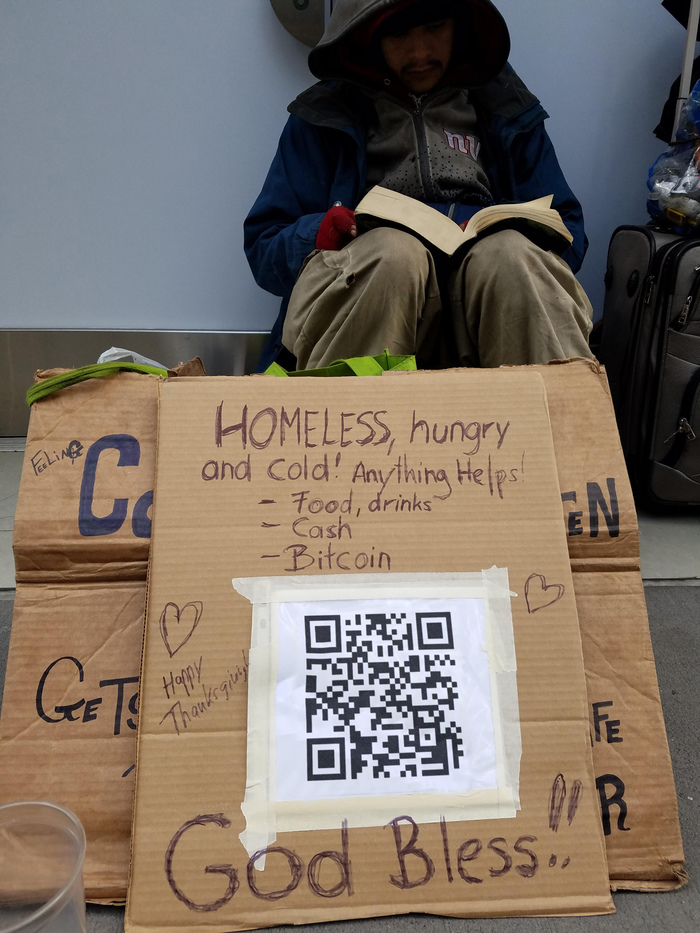 HOMELESS, hungry
and cold! Anything Helps!
- Food, drinks
- Cash
- Bitcoin
Happy
Thanksgiving!
God Bless!!
FEELiNG
GETS